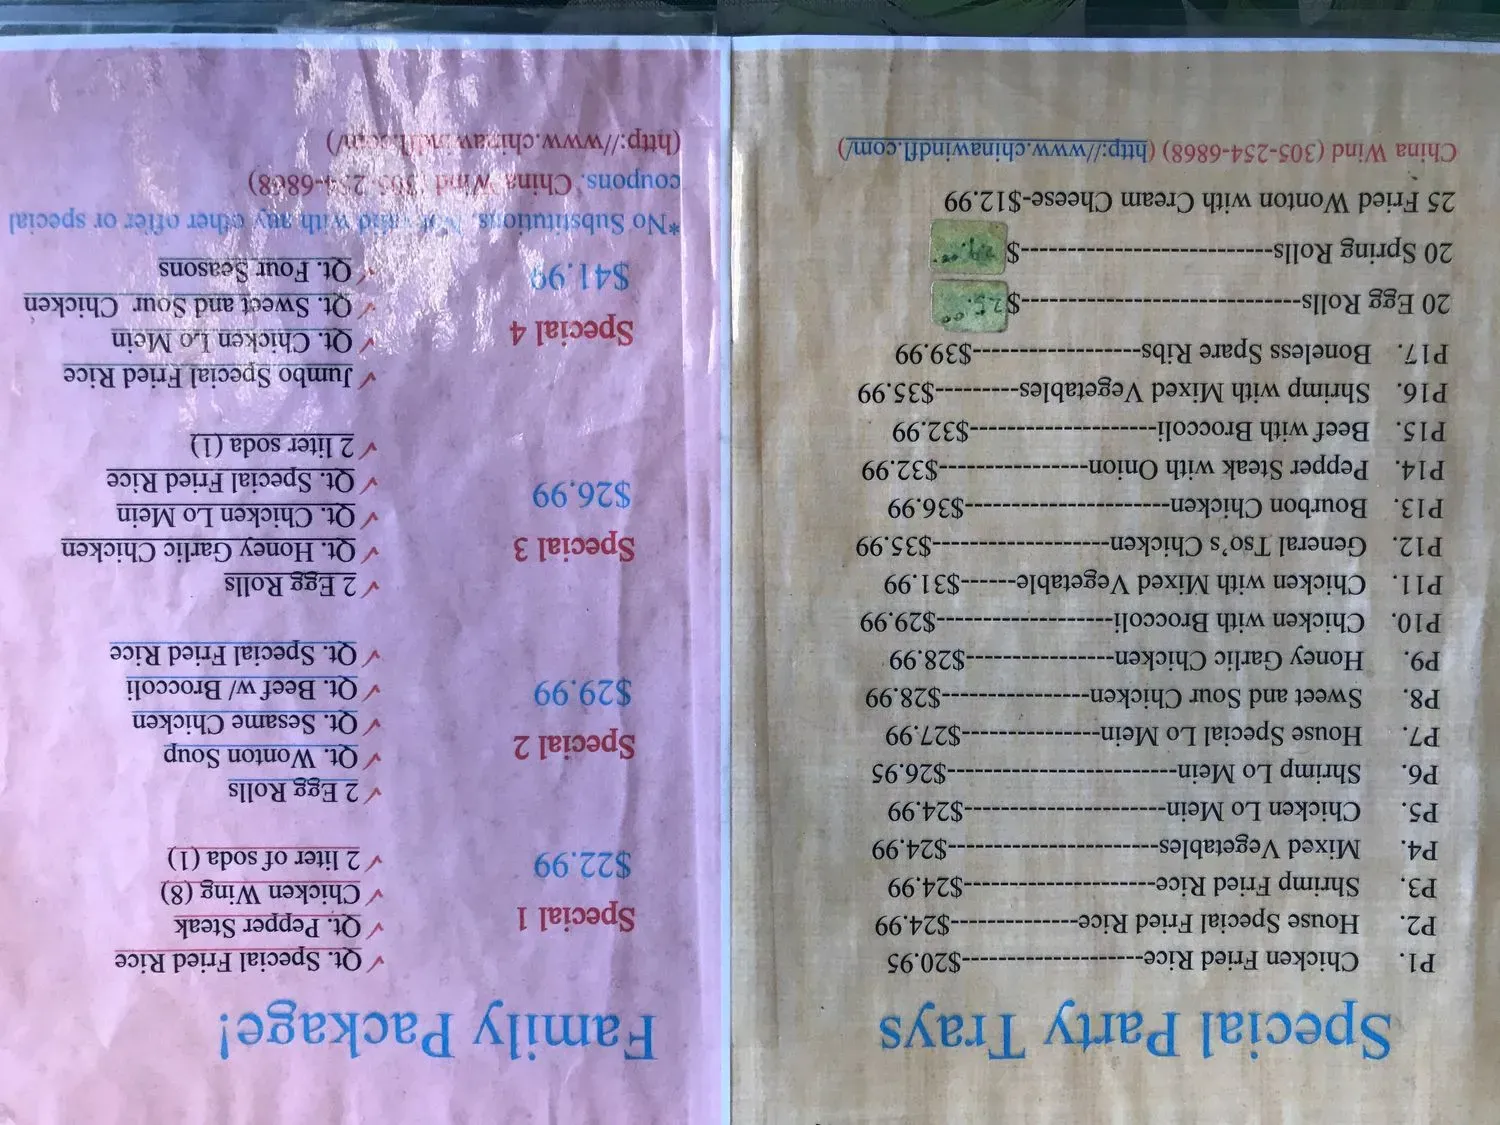 Special Party Trays
P1. Chicken Fried Rice------------------------$20.95
P2. House Special Fried Rice-----------------$24.99
P3. Shrimp Fried Rice-------------------------$24.99
P4. Mixed Vegetables----------------------------$24.99
P5. Chicken Lo Mein---------------------------$24.99
P6. Shrimp Lo Mein-------------------------------$26.95
P7. House Special Lo Mein-------------------$27.99
P8. Sweet and Sour Chicken--------------------$28.99
P9. Honey Garlic Chicken--------------------$28.99
P10. Chicken with Broccoli------------------------$29.99
P11. Chicken with Mixed Vegetable-------$31.99
P12. General Tso's Chicken------------------------$35.99
P13. Bourbon Chicken---------------------------$36.99
P14. Pepper Steak with Onion--------------------$32.99
P15. Beef with Broccoli-------------------------$32.99
P16. Shrimp with Mixed Vegetables-----------$35.99
P17. Boneless Spare Ribs----------------------$39.99
20 Egg Rolls--------------------------------------$25.00
20 Spring Rolls----------------------------------$
25 Fried Wonton with Cream Cheese-$12.99
China Wind (305-254-6868) (http://www.chinawindfl.com/)
Family Package!
Special 1
$22.99
✓ Qt. Special Fried Rice
✓ Qt. Pepper Steak
✓ Chicken Wing (8)
✓ 2 liter of soda (1)
Special 2
$29.99
✓ 2 Egg Rolls
✓ Qt. Wonton Soup
✓ Qt. Sesame Chicken
✓ Qt. Beef w/ Broccoli
✓ Qt. Special Fried Rice
Special 3
$26.99
✓ 2 Egg Rolls
✓ Qt. Honey Garlic Chicken
✓ Qt. Chicken Lo Mein
✓ Qt. Special Fried Rice
✓ 2 liter soda (1)
Special 4
$41.99
✓ Jumbo Special Fried Rice
✓ Qt. Chicken Lo Mein
✓ Qt. Sweet and Sour Chicken
✓ Qt. Four Seasons
*No Substitutions. Not valid with any other offer or special
coupons. China Wind (305-254-6868)
(http://www.chinawindfl.com/)